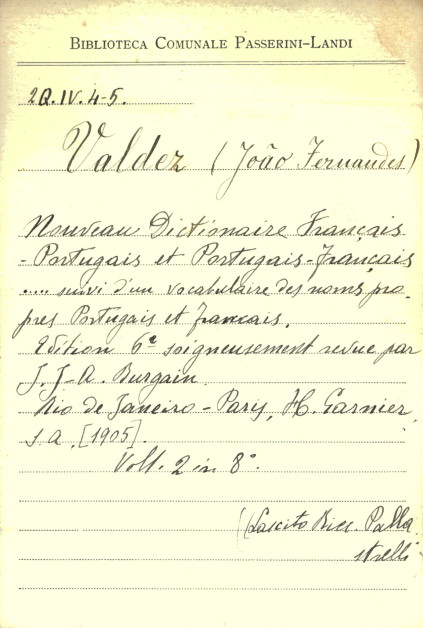 BIBLIOTECA COMUNALE PASSERINI-LANDI
2Q.IV.4-5.
Valdez (João Fernandes)
Nouveau Dictionaire Français
-Portugais et Portugais-Français
..... suivi d'un vocabulaire des noms pro-
pres Portugais et français.
Edition 6e soigneusement revue par
J. J-A. Burgain
Rio de Janeiro - Paris, H. Garnier,
s.a. [1905].
Voll. 2 in 8°.
(Lascito Palla
strelli